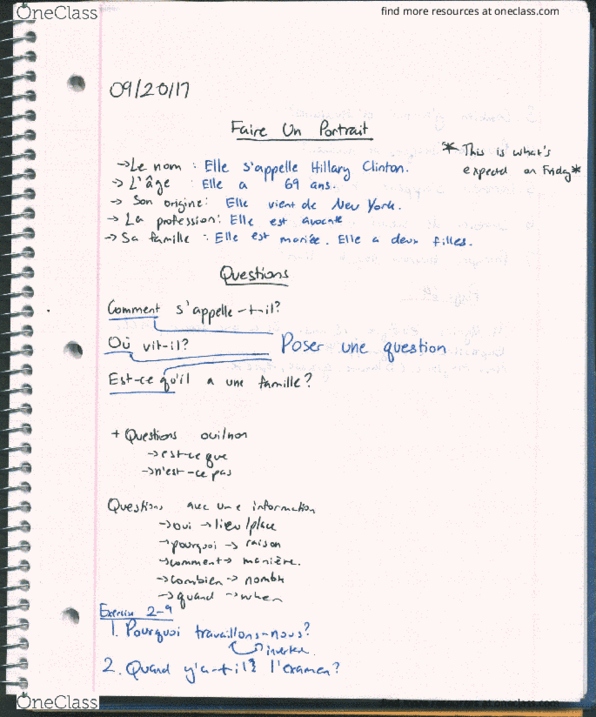 OneClass
find more resources at oneclass.com
09/20/17
Faire Un Portrait
* This is what's
expected on Friday*
→Le nom : Elle s'appelle Hillary Clinton.
→ L'âge : Elle a 69 ans.
→ Son origine: Elle vient de New York.
→ La profession: Elle est avocate
→ Sa famille : Elle est mariée. Elle a deux filles.
Questions
Comment s'appelle-t-il?
Où vit-il?
Poser une question
Est-ce qu'il a une famille?
+ Questions oui/non
→est-ce que
→n'est-ce pas
Questions avec une information
→oui →lieu/place
→pourquoi → raison
→comment→ manière.
→combien→ nombre
→quand →when
Exercise 2-9
1. Pourquoi travaillons-nous?
inverse.
2. Quand y'a-t-il? l'examen?
OneClass
find more resources at oneclass.com